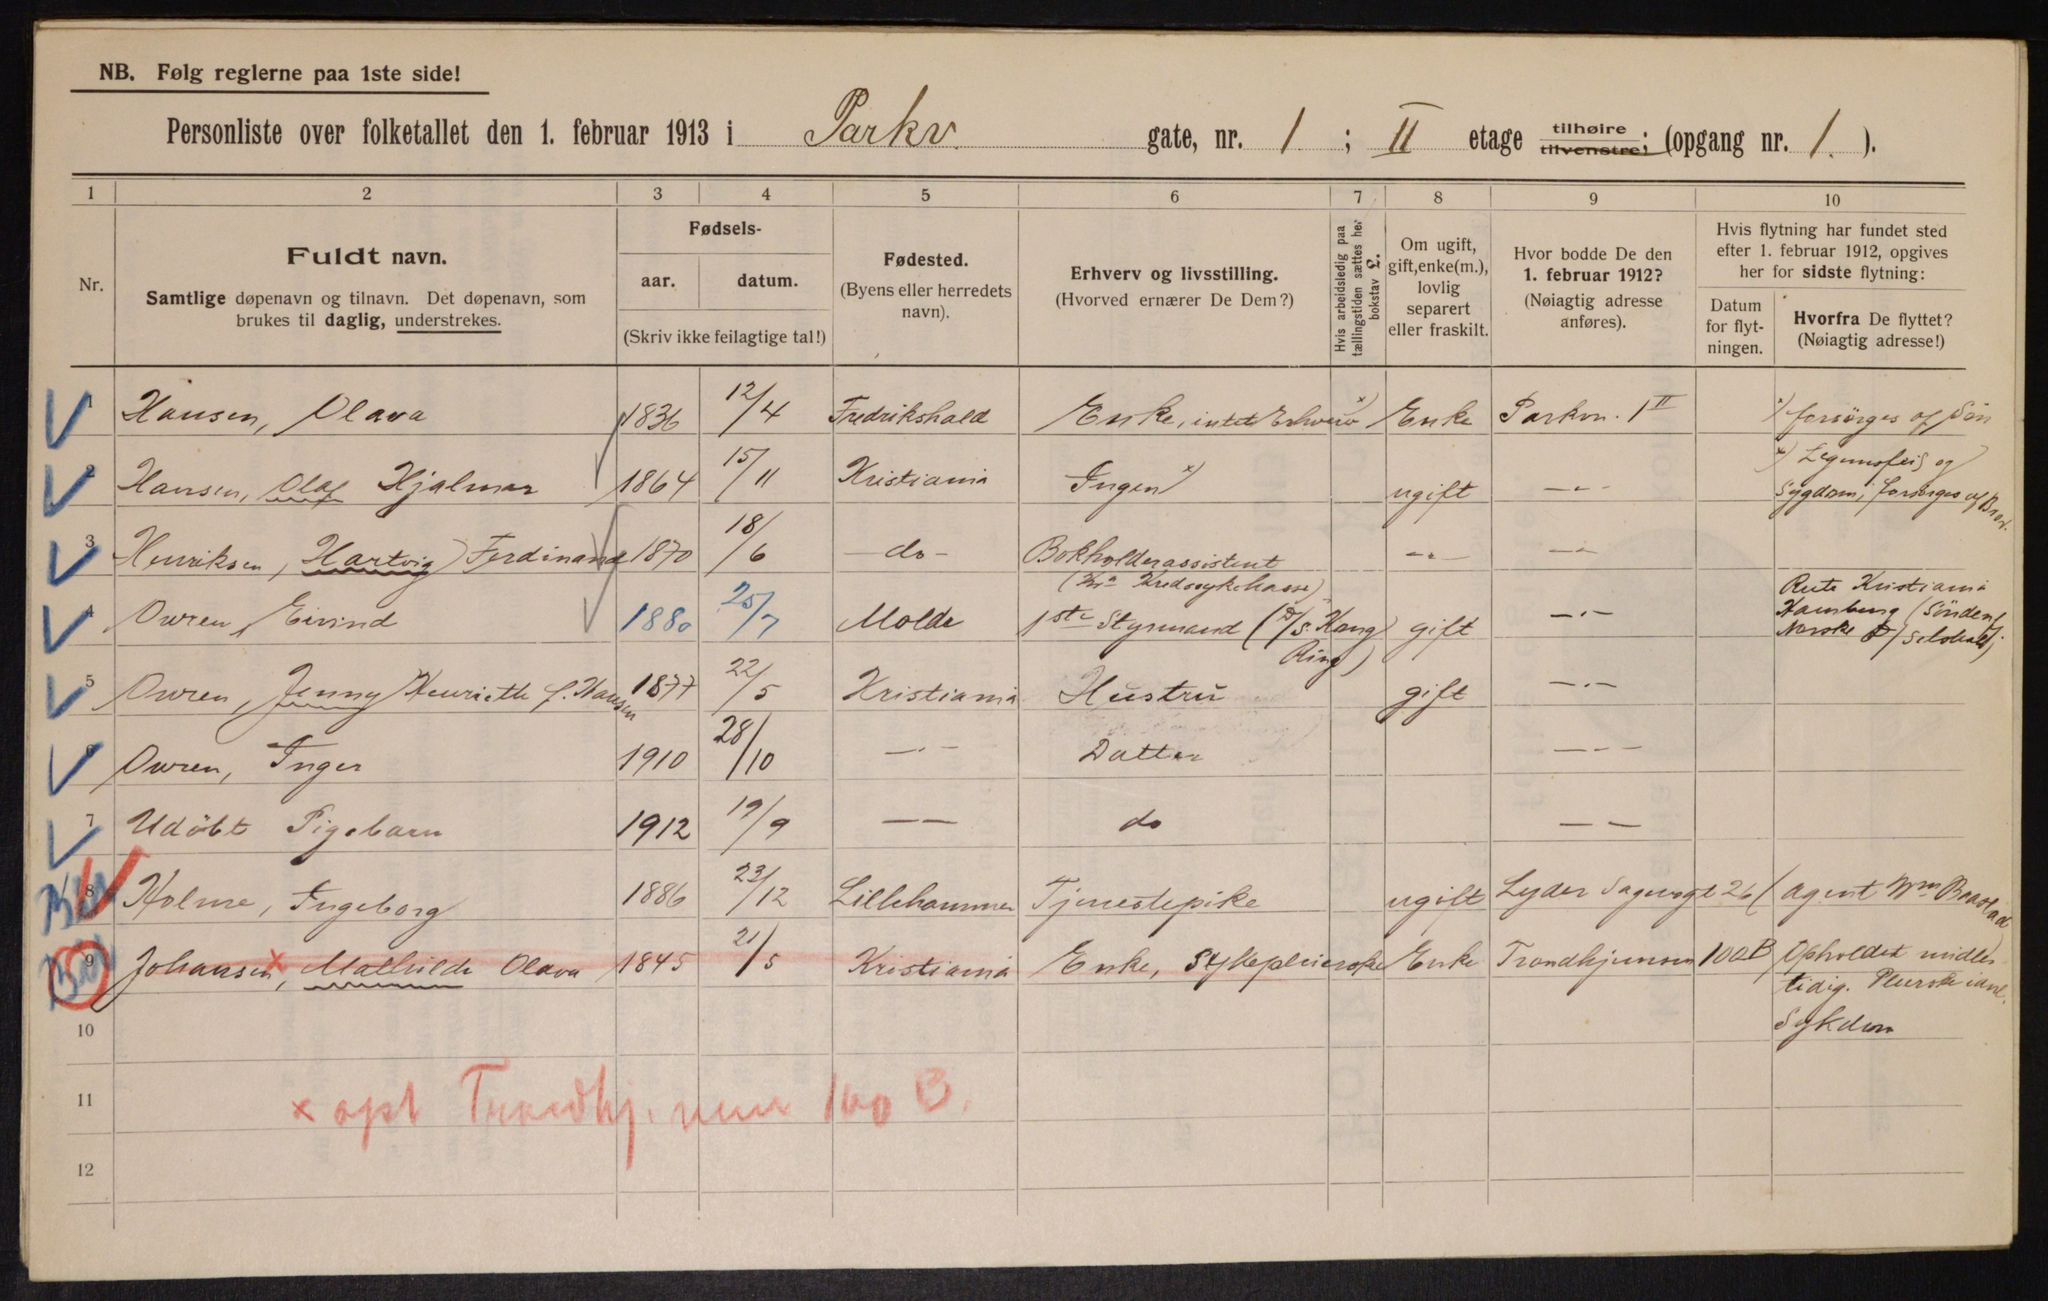 NB. Følg reglerne paa 1ste side!
Personliste over folketallet den 1. februar 1913 i Parkv. gate, nr. 1 ; II etage tilhøire tilvenstre; (opgang nr. 1. ).
1 2 3 4 5 6 7 8 9 10
Nr.
Fuldt navn.
Samtlige døpenavn og tilnavn. Det døpenavn, som
brukes til daglig, understrekes.
Fødsels-
aar. datum.
(Skriv ikke feilagtige tal!)
Fødested.
(Byens eller herredets
navn).
Erhverv og livsstilling.
(Hvorved ernærer De Dem?)
Hvis arbeidsledig paa
tællingstiden sættes her
bokstav L.
Om ugift,
gift, enke(m.),
lovlig
separert
eller fraskilt.
Hvor bodde De den
1. februar 1912?
(Nøiagtig adresse
anføres).
Hvis flytning har fundet sted
efter 1. februar 1912, opgives
her for sidste flytning:
Datum
for flyt-
ningen.
Hvorfra De flyttet?
(Nøiagtig adresse!)
1 Hansen, Olava 1836 12/4 Fredrikshald Enke, intet Erhverv x) Enke Parkvn. 1 II x) forsørges af Søn
2 Hansen, Olaf Hjalmar 1864 15/11 Kristiania Ingen x) ugift —"— x) Legemsfeil og
Sygdom, forsørges af Bror.
3 Henriksen, Hartvig Ferdinand 1870 18/6 —do— Bokholderassistent —"— —"—
(Kra Kredssykekasse)
4 Owren, Eivind 1880 25/7 Molde 1ste Styrmand (D/S. Kong gift —"—
Ring)
Rute Kristiania
Hamburg (Sønden
Norske D/Selskab)
5 Owren, Jenny Henriette f. Hansen 1877 22/5 Kristiania Hustru gift —"—
6 Owren, Inger 1910 28/10 —"— Datter —"—
7 Udöbt Pigebarn 1912 19/9 — — do — —
8 Holme, Ingeborg 1886 23/12 Lillehammer Tjenestepike ugift Lyder Sagensgt 26 (agent Wm
9 Johansen, x Mathilde Olava 1845 21/5 Kristiania Enke, Sykepleierske Enke Trondhjemsvn 100B Opholdet midler-
tidig. Pleierske
Sykdom
10
11
12
x opt Trondhj. veien 100 B.